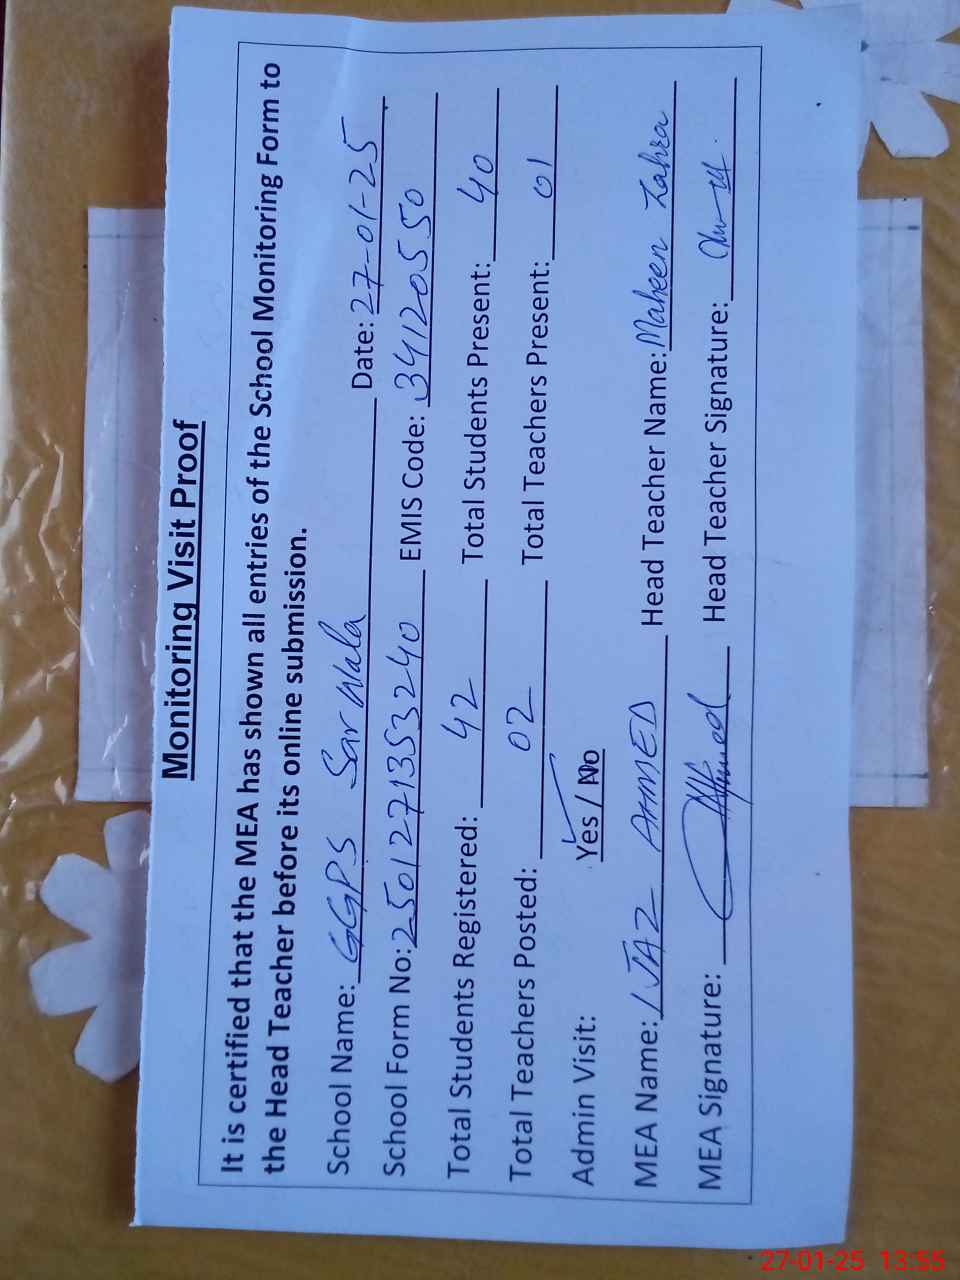 Monitoring Visit Proof
It is certified that the MEA has shown all entries of the School Monitoring Form to
the Head Teacher before its online submission.
School Name: GGPS Sar Wala Date: 27-01-25
School Form No: 2501271353240 EMIS Code: 34120550
Total Students Registered: 42 Total Students Present: 40
Total Teachers Posted: 02 Total Teachers Present: 01
Admin Visit: Yes / No
MEA Name: IJAZ AHMED Head Teacher Name: Maheen Zahra
MEA Signature: Ahmed Head Teacher Signature:
27-01-25 13:55